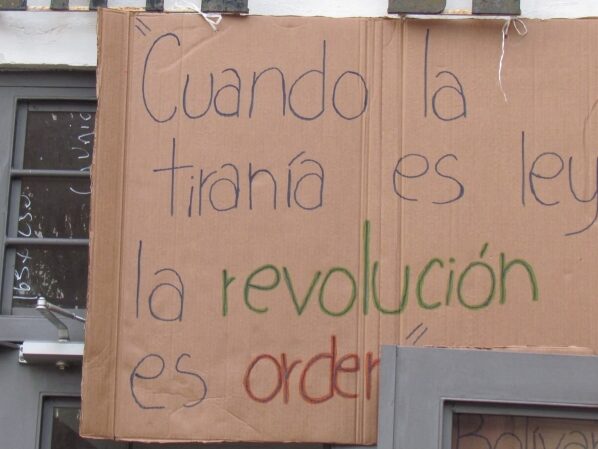 "Cuando la
tiranía es ley
la revolución
es orden"
Bolívar